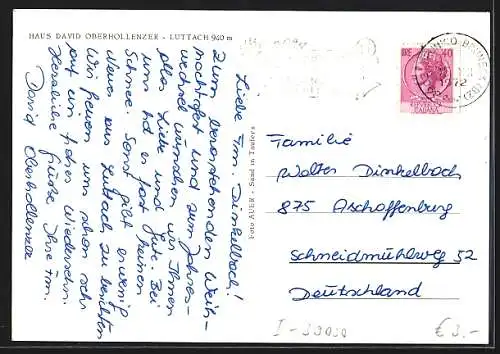 HAUS DAVID OBERHOLLENZER - LUTTACH 940 m
Liebe Fam. Dinkelbach!
Zum bevorstehenden Weih-
nachtsfest und zum Jahres-
wechsel wünschen wir Ihnen
alles Liebe und Gute. Bei
uns hat es fast keinen
Schnee. Sonst gibt es wenig
Neues aus Luttach zu berichten
Wir freuen uns schon sehr
auf ein frohes Wiedersehn.
Herzliche Grüße Ihre Fam.
David Oberhollenzer
Foto AUER - Sand in Taufers
40
1972
Familie
Walter Dinkelbach
875 Aschaffenburg
Schneidmühlweg 52
Deutschland
€ 3.-